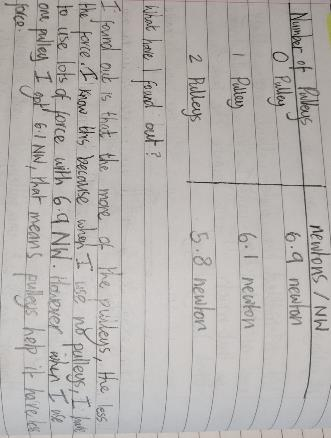 Number of Pulleys newtons / NW
0 Pulley 6.9 newton
1 Pulley 6.1 newton
2 Pulleys 5.8 newton
What have I found out?
I found out is that the more of the pulleys, the less
the force. I know this because when I use no pulleys, I have
to use lots of force with 6.9 NW. However when I use
one pulley I got 6.1 NW, that means pulleys help it have less
force.